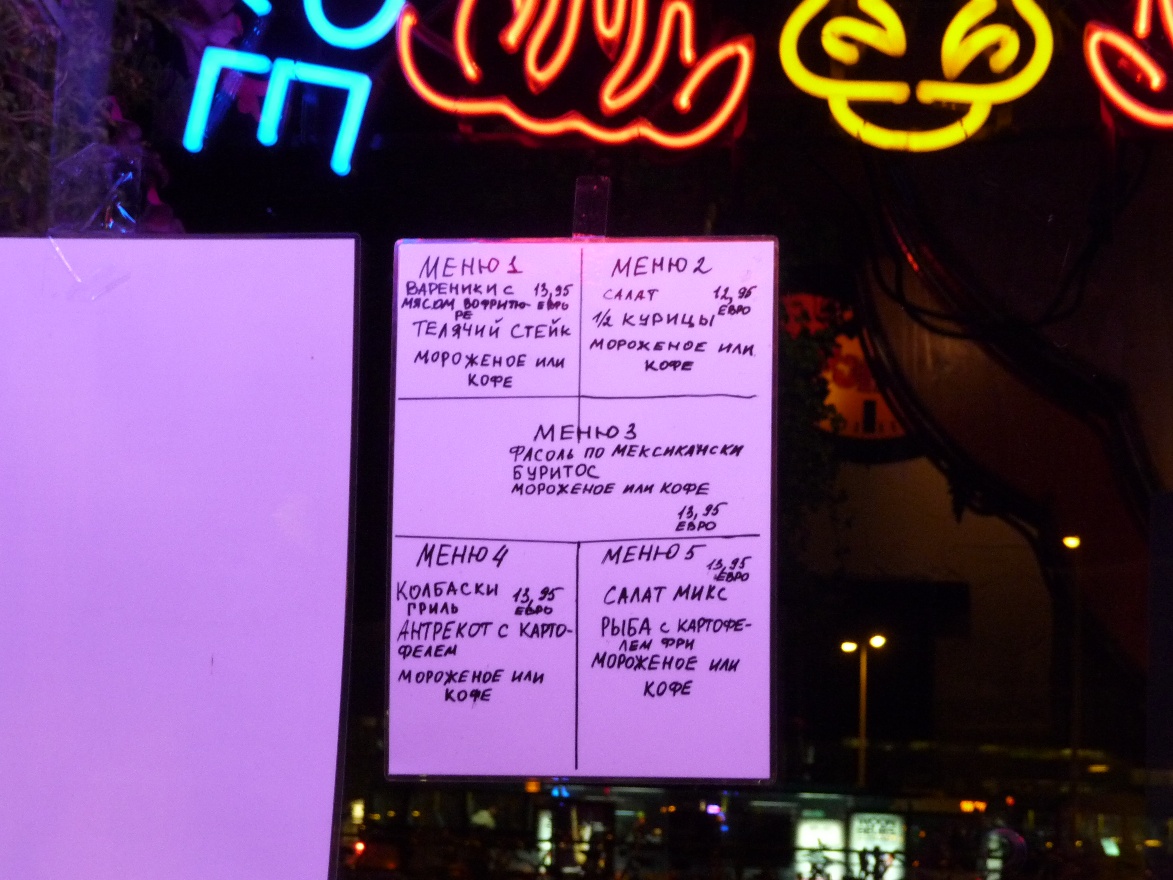 МЕНЮ 1
ВАРЕНИКИ С 13,95
МЯСОМ ВОФРИТЮ- ЕВРО
РЕ
ТЕЛЯЧИЙ СТЕЙК
МОРОЖЕНОЕ ИЛИ
КОФЕ
МЕНЮ 2
САЛАТ 12,95
ЕВРО
1/2 КУРИЦЫ
МОРОЖЕНОЕ ИЛИ
КОФЕ
МЕНЮ 3
ФАСОЛЬ ПО МЕКСИКАНСКИ
БУРИТОС
МОРОЖЕНОЕ ИЛИ КОФЕ
13,95
ЕВРО
МЕНЮ 4
КОЛБАСКИ 13,95
ГРИЛЬ ЕВРО
АНТРЕКОТ С КАРТО-
ФЕЛЕМ
МОРОЖЕНОЕ ИЛИ
КОФЕ
МЕНЮ 5
13,95
ЕВРО
САЛАТ МИКС
РЫБА С КАРТОФЕ-
ЛЕМ ФРИ
МОРОЖЕНОЕ ИЛИ
КОФЕ